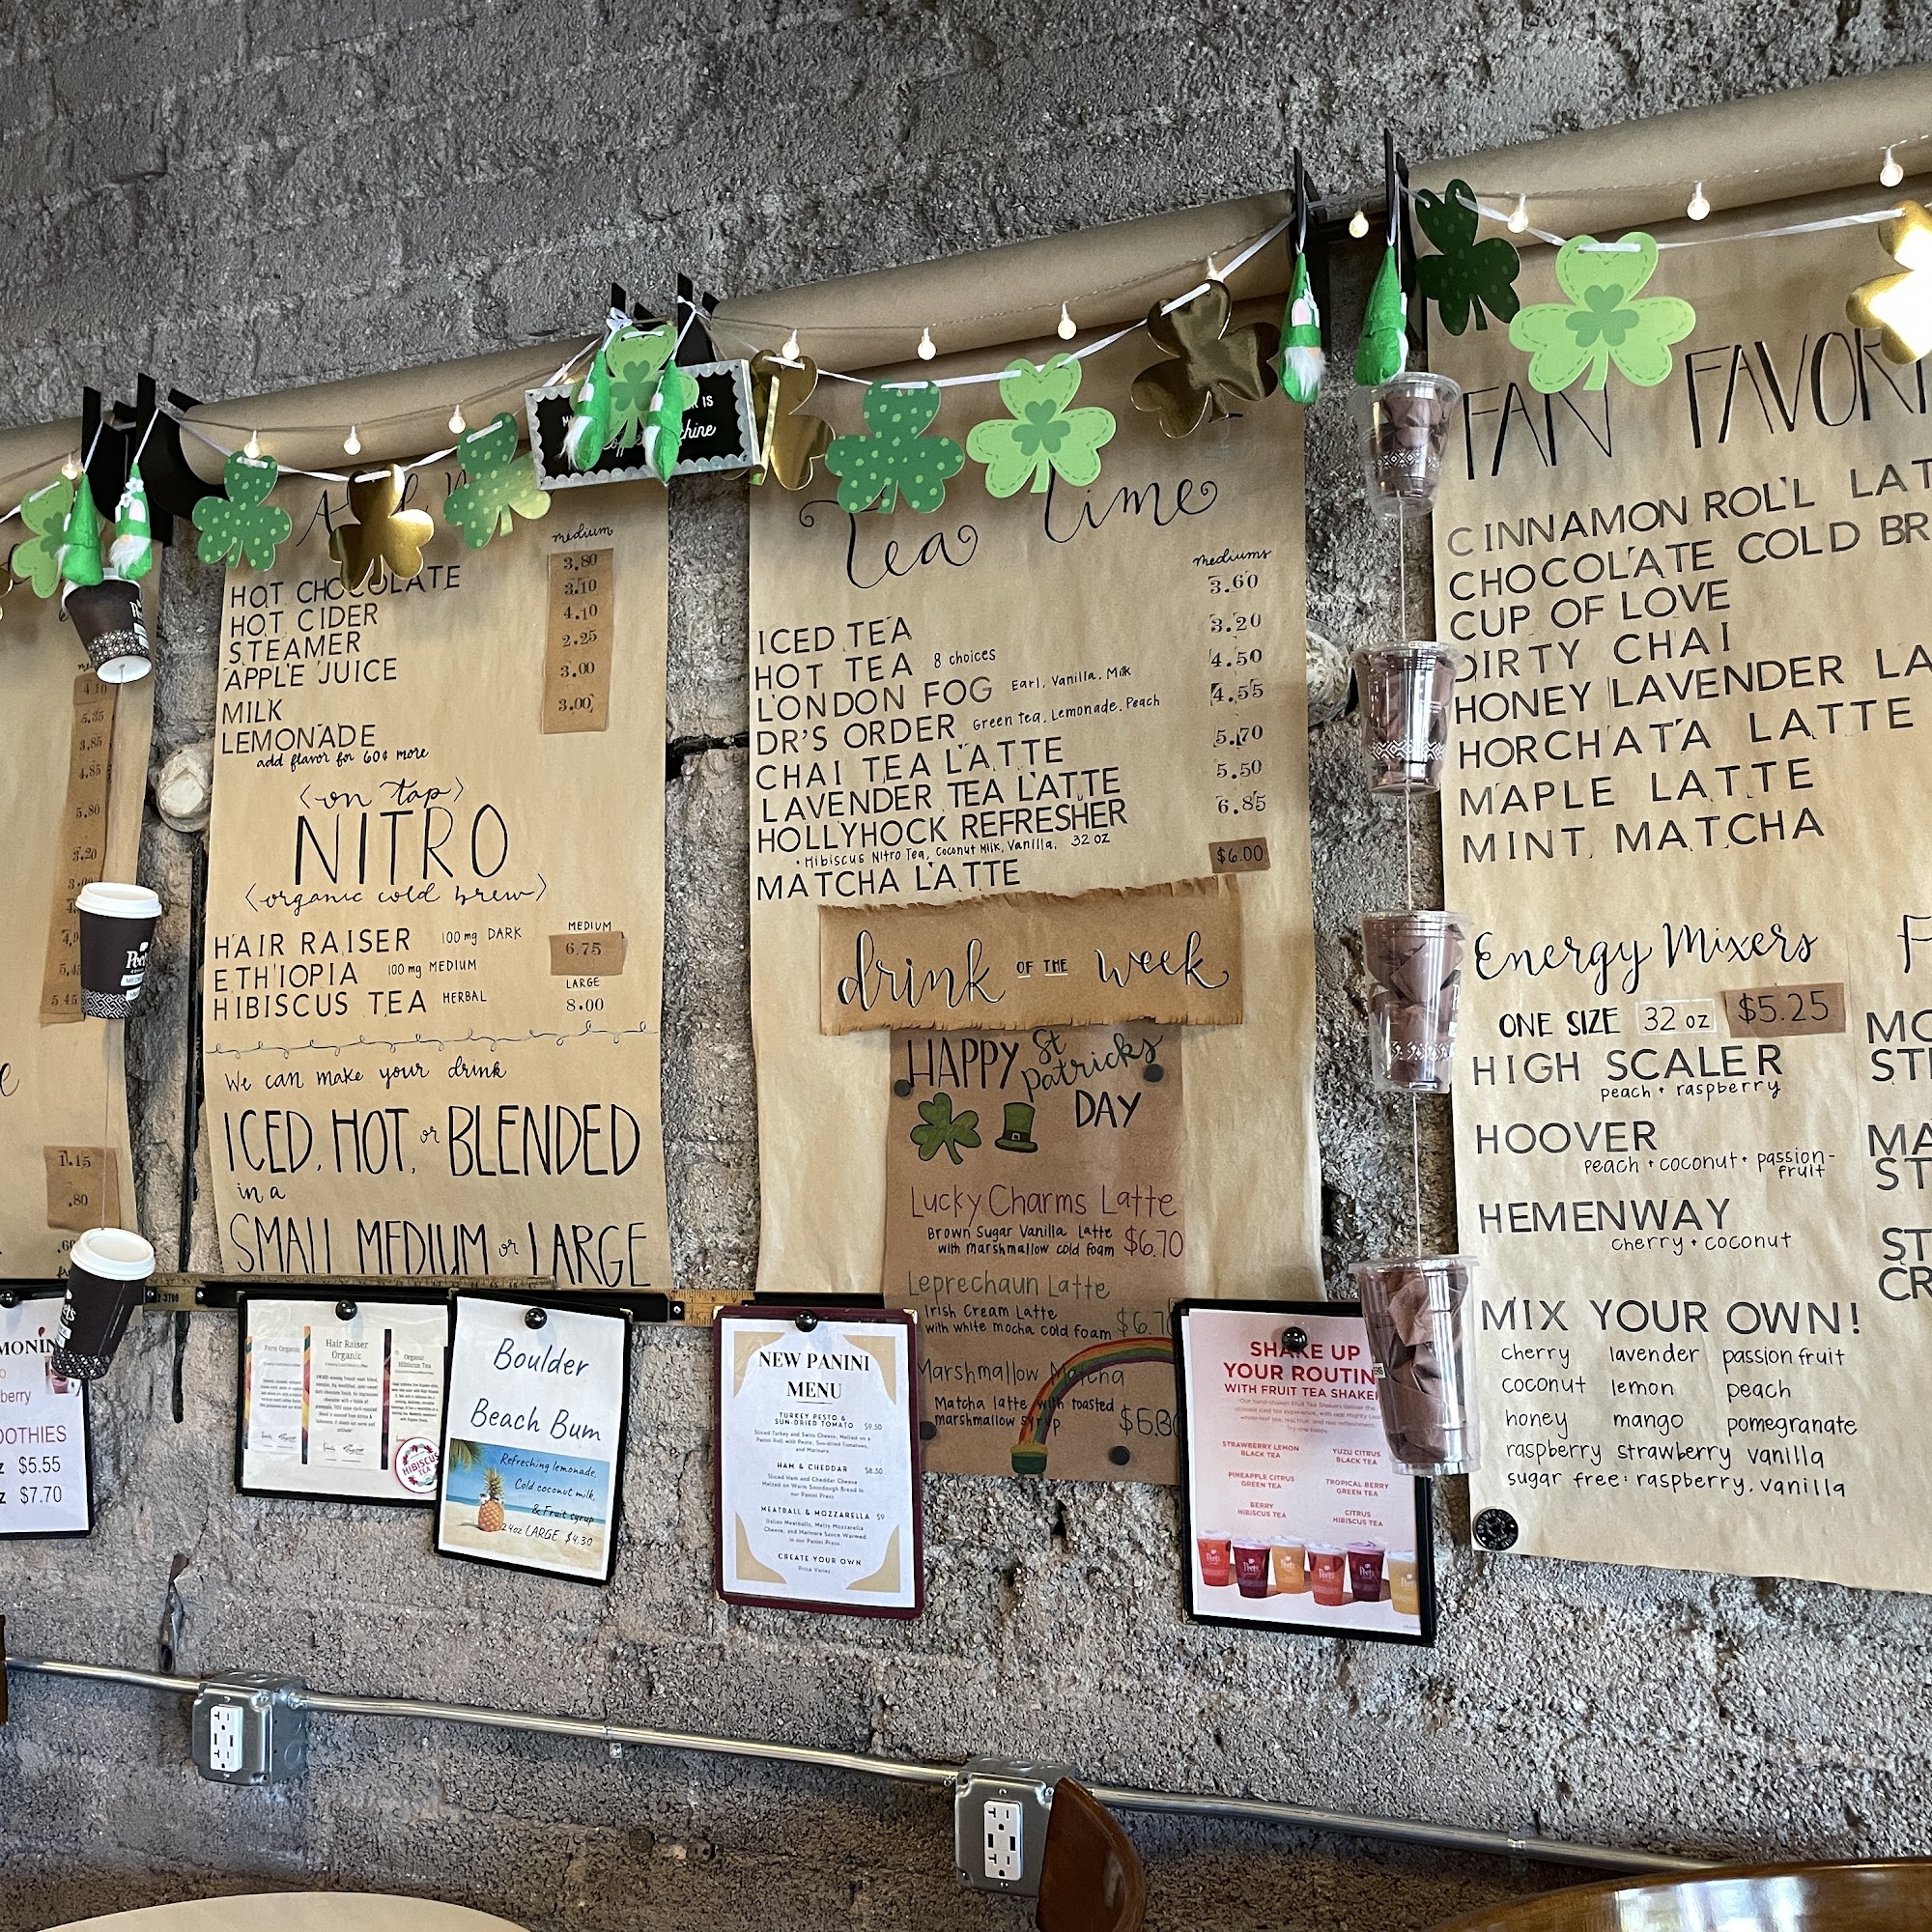 4.10
5.35
3.85
4.85
5.80
3.20
5.45
1.15
.80
medium
HOT CHOCOLATE 3.80
HOT CIDER 3.10
STEAMER 4.10
APPLE JUICE 2.25
MILK 3.00
LEMONADE 3.00
add flavor for 60¢ more
<on tap>
NITRO
<organic cold brew>
MEDIUM
HAIR RAISER 100mg DARK 6.75
ETHIOPIA 100mg MEDIUM
LARGE
HIBISCUS TEA HERBAL 8.00
We can make your drink
ICED, HOT, or BLENDED
in a
SMALL MEDIUM or LARGE
IS
Tea Time
mediums
ICED TEA 3.60
HOT TEA 8 choices 3.20
LONDON FOG Earl, Vanilla, Milk 4.50
DR'S ORDER Green tea, Lemonade, Peach 4.55
CHAI TEA LATTE 5.70
LAVENDER TEA LATTE 5.50
HOLLYHOCK REFRESHER 6.85
• Hibiscus Nitro Tea, Coconut Milk, Vanilla, 32 oz
MATCHA LATTE $6.00
drink OF THE week
HAPPY St Patricks
DAY
Lucky Charms Latte
Brown Sugar Vanilla Latte
with marshmallow cold foam $6.70
Leprechaun Latte
Irish Cream Latte
with white mocha cold foam
Marshmallow Matcha
Matcha latte with toasted
marshmallow syrup
FAN FAVOR
CINNAMON ROLL LAT
CHOCOLATE COLD BR
CUP OF LOVE
DIRTY CHAI
HONEY LAVENDER LA
HORCHATA LATTE
MAPLE LATTE
MINT MATCHA
Energy Mixers
ONE SIZE 32 oz $5.25
HIGH SCALER
peach + raspberry
HOOVER
peach + coconut + passion-
fruit
HEMENWAY
cherry + coconut
MIX YOUR OWN!
cherry lavender passion fruit
coconut lemon peach
honey mango pomegranate
raspberry strawberry vanilla
sugar free: raspberry, vanilla
MO
ST
MA
ST
ST
CR
berry
OOTHIES
z $5.55
z $7.70
Peru Organic
Hair Raiser
Organic
Organic
Hibiscus Tea
HIBISCUS
TEA
Boulder
Beach Bum
Refreshing lemonade,
Cold coconut milk,
& Fruit syrup
24oz LARGE $4.30
NEW PANINI
MENU
TURKEY PESTO &
SUN-DRIED TOMATO $9.50
Sliced Turkey and Swiss Cheese, Melted on a
Panini Roll with Pesto, Sun-dried Tomatoes,
and Marinara
HAM & CHEDDAR $8.50
Sliced Ham and Cheddar Cheese
Melted on Warm Sourdough Bread in
our Panini Press
MEATBALL & MOZZARELLA $9
Italian Meatballs, Melty Mozzarella
Cheese, and Marinara Sauce Warmed
in our Panini Press
CREATE YOUR OWN
Price Varies
SHAKE UP
YOUR ROUTIN
WITH FRUIT TEA SHAKE
STRAWBERRY LEMON
BLACK TEA
YUZU CITRUS
BLACK TEA
PINEAPPLE CITRUS
GREEN TEA
TROPICAL BERRY
GREEN TEA
BERRY
HIBISCUS TEA
CITRUS
HIBISCUS TEA
Peet's